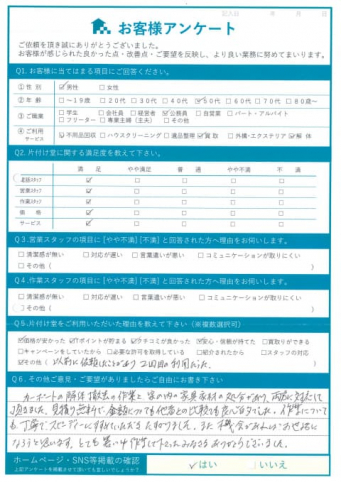 記入日 年 月 日
お客様アンケート
ご依頼を頂き誠にありがとうございました。
お客様が感じられた良かった点・改善点・ご要望を反映し、より良い業務に努めてまいります。
Q1. お客様に当てはまる項目にご回答ください。
①性 別 ☑男性 □女性
②年 齢 □〜19歳 □20代 □30代 □40代 ☑50代 □60代 □70代 □80歳〜
③ご職業 □学生 □会社員 □経営者 ☑公務員 □自営業 □パート・アルバイト
□フリーター □専業主婦(主夫) □その他
④ご利用サービス ☑不用品回収 □ハウスクリーニング □遺品整理 ☑買取 □外構・エクステリア ☑解体
Q2. 片付け堂に関する満足度を教えて下さい。
満足 やや満足 普通 やや不満 不満
電話スタッフ ☑ □ □ □ □
営業スタッフ ☑ □ □ □ □
作業スタッフ ☑ □ □ □ □
価格 ☑ □ □ □ □
サービス ☑ □ □ □ □
Q3.営業スタッフの項目に[やや不満][不満]と回答された方へ理由をお伺いします。
□清潔感が無い □対応が遅い □言葉遣いが悪い □コミュニケーションが取りにくい
□その他( )
Q4.作業スタッフの項目に[やや不満][不満]と回答された方へ理由をお伺いします。
□清潔感が無い □対応が遅い □言葉遣いが悪い □コミュニケーションが取りにくい
□その他( )
Q5.片付け堂をご利用いただいた理由を教えて下さい(※複数選択可)
☑価格が安かった ☑Tポイントが貯まる ☑クチコミが良かった ☑安心・信頼が持てた □買取りができる
□キャンペーンをしていたから □必要な許可を取得している □紹介されたから □スタッフの対応
☑その他(以前に依頼したことがあり2回目の利用でした。
Q6.その他ご意見・ご要望がありましたらご自由にお書き下さい
カーポートの解体撤去の作業と家の中の家具家財の処分があり、両方に対応して
頂きました。見積り無料で金額についても他者との比較も良心的でした。作業についても
丁寧でスピーディーにすすめていただきたすかりました。また機会があればお世話に
なろうと思います。とても暑い中作業して下さったみなさまありがとうございました。
ホームページ・SNS等掲載の確認
上記アンケートを掲載させて頂いても宜しいでしょうか?
✓はい □いいえ